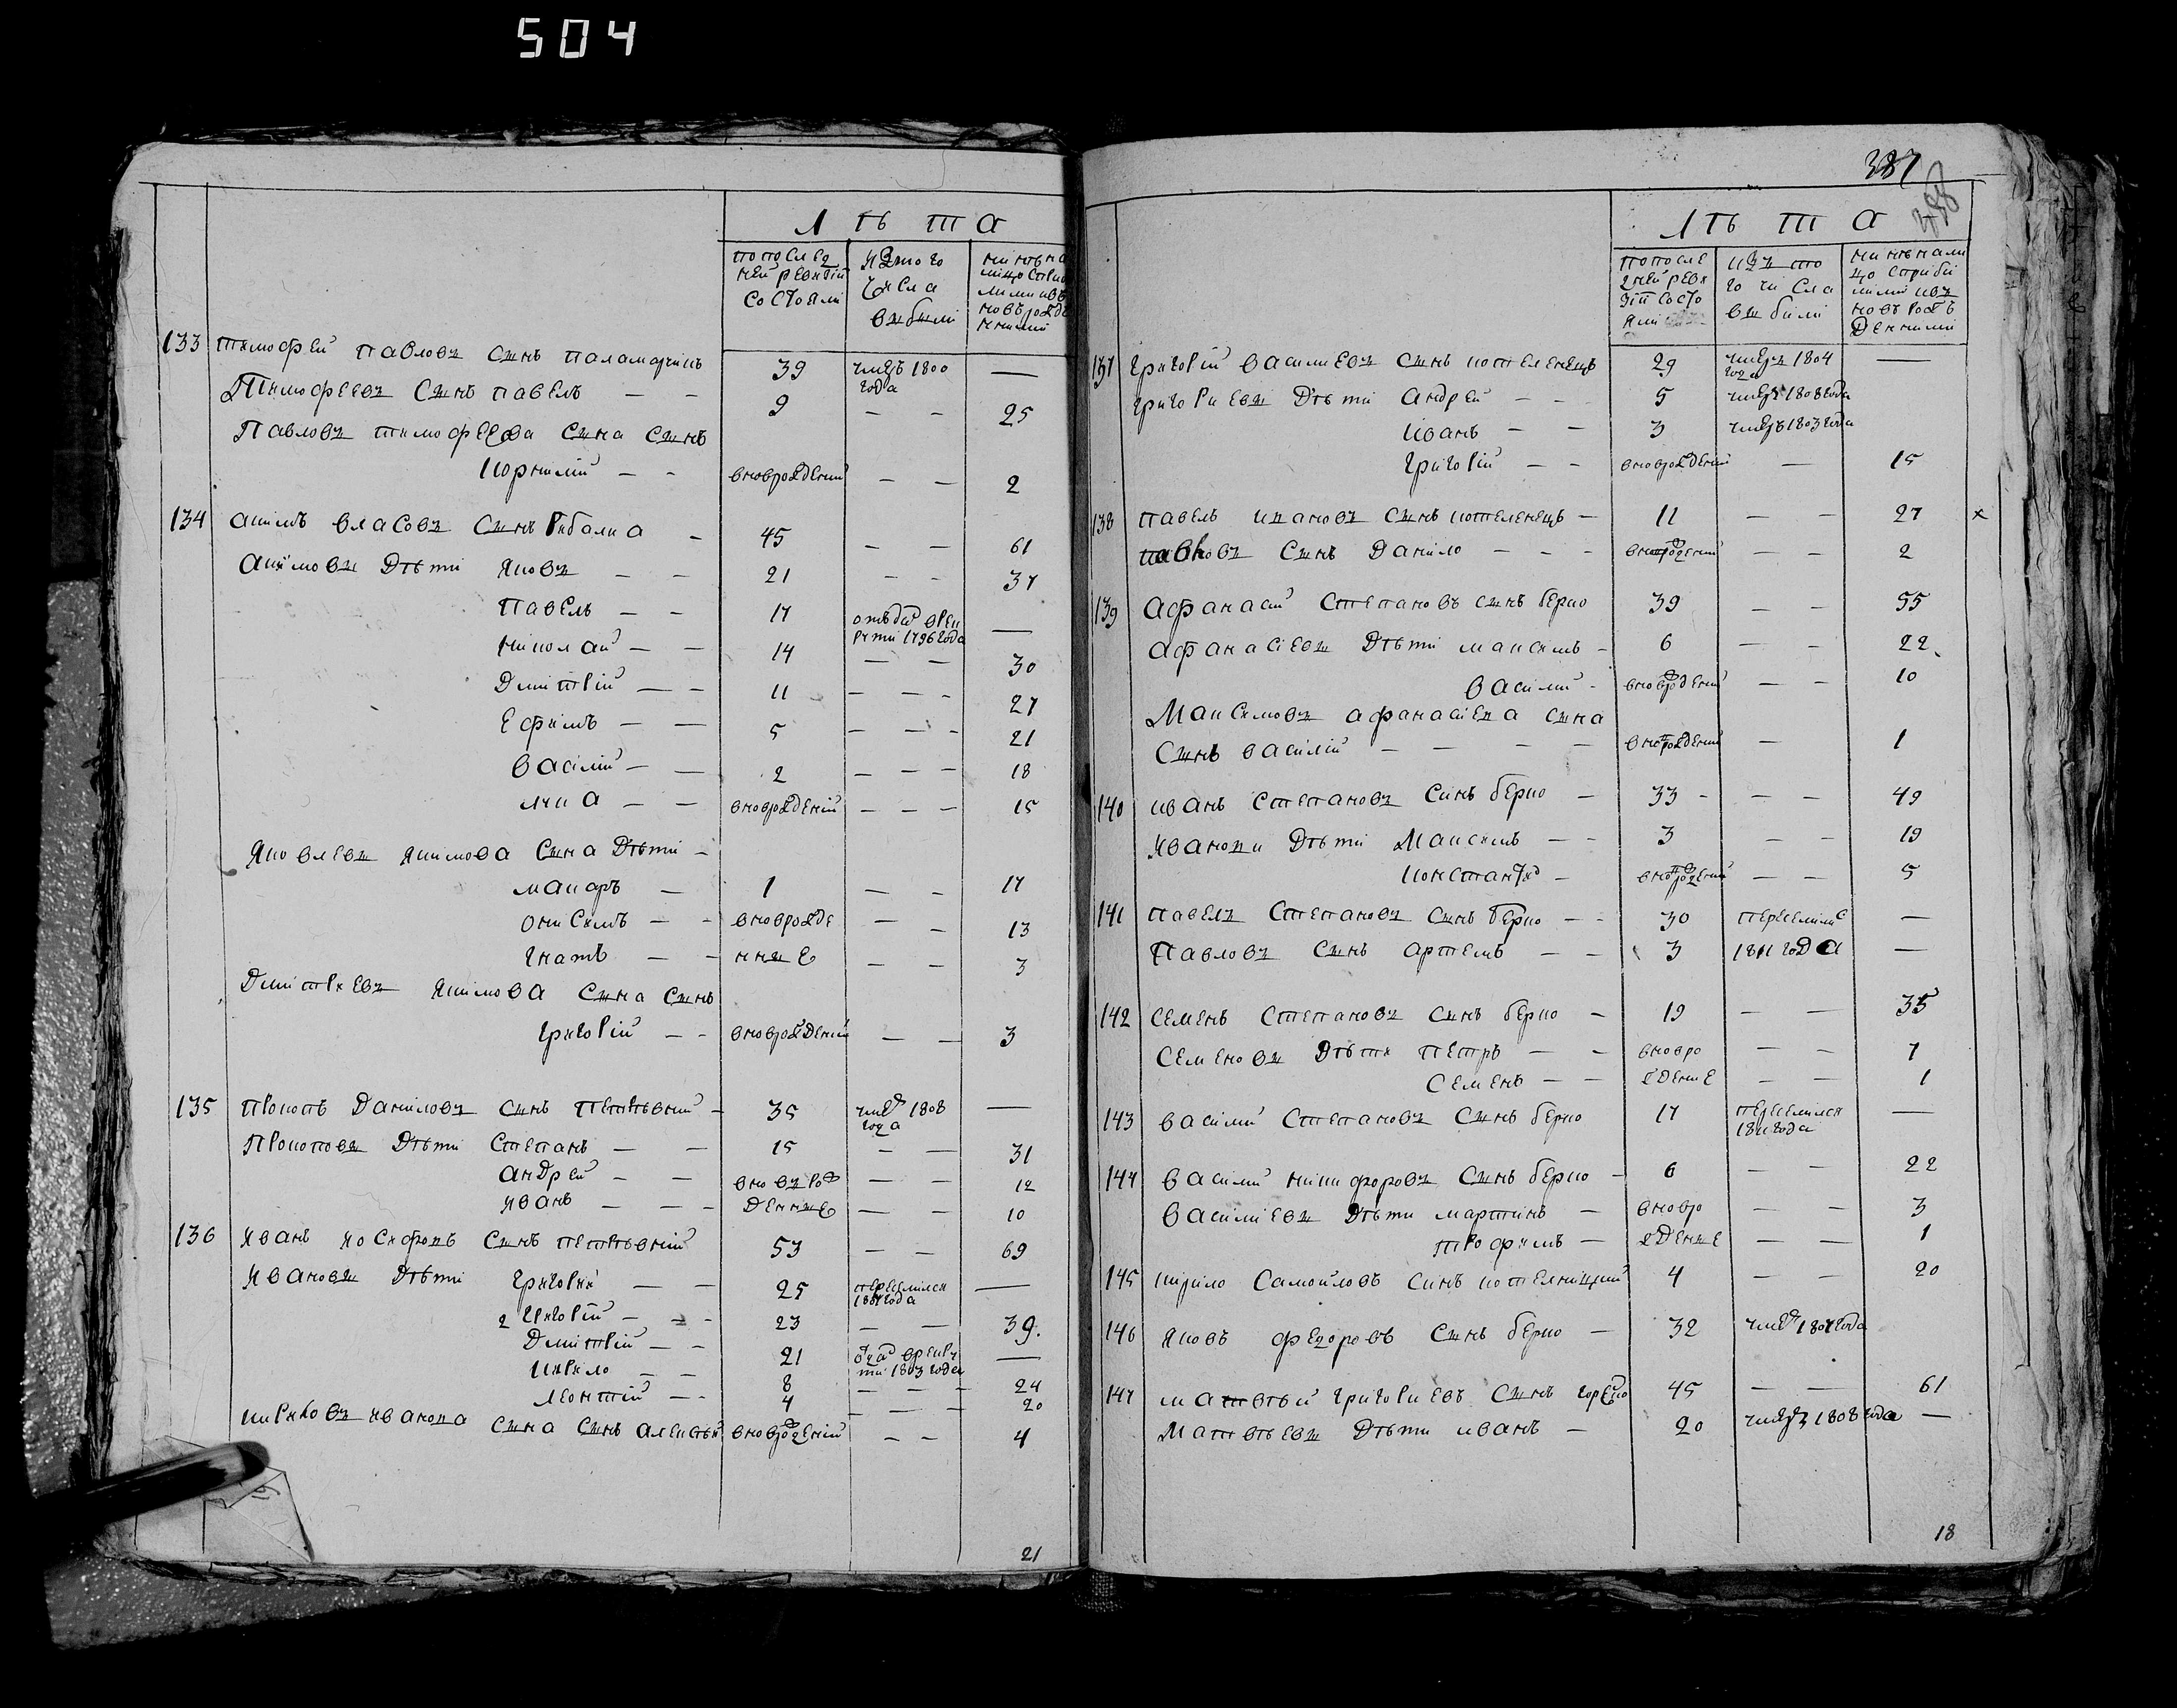 504
Лѣта
по послед
ней ревизіи
состояли
Изтого
числа
выбыли
нынѣ на
133 Тимофей Павловъ сынъ Паламарчукъ 39 умеръ 1800 года —
Тимофеевъ сынъ Павелъ — — 9 — — 25
Павловъ Тимофеева сына сынъ
Корнилій — — вноврожденій — — 2
134 Акимъ Власовъ сынъ Рибалка — 45 — — 61
Акимовы дѣти Яковъ — — 21 — — 37
Павелъ — — 17 отъдан врек рути 1796 года —
Николай — — 14 — — 30
Дмитрій — — 11 — — — 27
Ефимъ — — 5 — — — 21
Василій — — 2 — — — 18
Лука — — вноврожденій — — — 15
Яковлевы Якимова сына дѣти —
Макаръ — 1 — — 17
Онисимъ — — вноврожде — — 13
Гнатъ — — нные — — 3
Дмитриевъ Якимова сына сынъ
Григорій — — вноврожденій — — 3
135 Прокопъ Даниловъ сынъ Петрѣвскій — 35 умер 1808 года —
Прокоповы дѣти Степанъ — — 15 — — 31
Андрей — — вновърож — — 12
Иванъ — — — денные — — 10
136 Иванъ Йосифовъ сынъ Петрѣвскій 53 — — 69
Ивановы дѣти Григорий — — 25 переселился года —
2 Григорій — — — 23 — — 39.
Дмитрій — — 21 одан врекру ти 1803 года —
Кирило — — 8 — — — 24
Леонтій — — 4 — — — 20
Кириловъ Иванова сына сынъ Алексѣй вноврожденій — — 4
21
387
388
Лѣта
по после
дней реви
зіи состо
яли
изъ то
го числа
выбили
нынѣ нали
цо сприбі
лими изъ
новъ рожъ
денними
137 Григорій Василиевъ сынъ Котеленецъ 29 умеръ 1804 года —
Григориевы дѣти Андрей — — 5 умеръ 1808 года
Иванъ — — 3 умеръ 1803 года
Григорій — — вноврожденій — 15
138 Павелъ Ивановъ сынъ Котеленецъ — 11 — — 27 х
Павловъ сынъ Данило — — — вноврожденій — — 2
139 Афанасій Степановъ сынъ Берко 39 — — 55
Афанасіевы дѣти Максимъ — 6 — — 22
Василій — вноврожденій — — 10
Максимовъ Афанасіева сина
сынъ Василій — — — — вноврожденій — 1
140 Иванъ Степановъ синъ Берко — 33 — — — 49
Иванови дѣти Максимъ — — 3 — — 19
Константин — вноврожденій — — 5
141 Павелъ Степановъ сынъ Берко — — 30 переселилис —
Павловъ сынъ Артемъ — — 3 1811 года —
142 Семенъ Степановъ сынъ Берко — 19 — — 35
Семеновы дѣти Петръ — — вновро — — 7
Семенъ — — ждение — — 1
143 Василій Степановъ сынъ Берко 17 переселился 1811 года —
144 Василій Никифоровъ сынъ Берко — 6 — — 22
Василіевы дѣти Мартинъ — вновро — — 3
Трофимъ — жденне — — 1
145 Кирило Самойловъ синъ Котелницкий 4 — — 20
146 Яковъ Федоровъ сынъ Берко — 32 умер года
147 Матвѣй Григориевъ сынъ 45 — — 61
Матвѣевы дѣти Иванъ — 20 умеръ 1808 года —
18